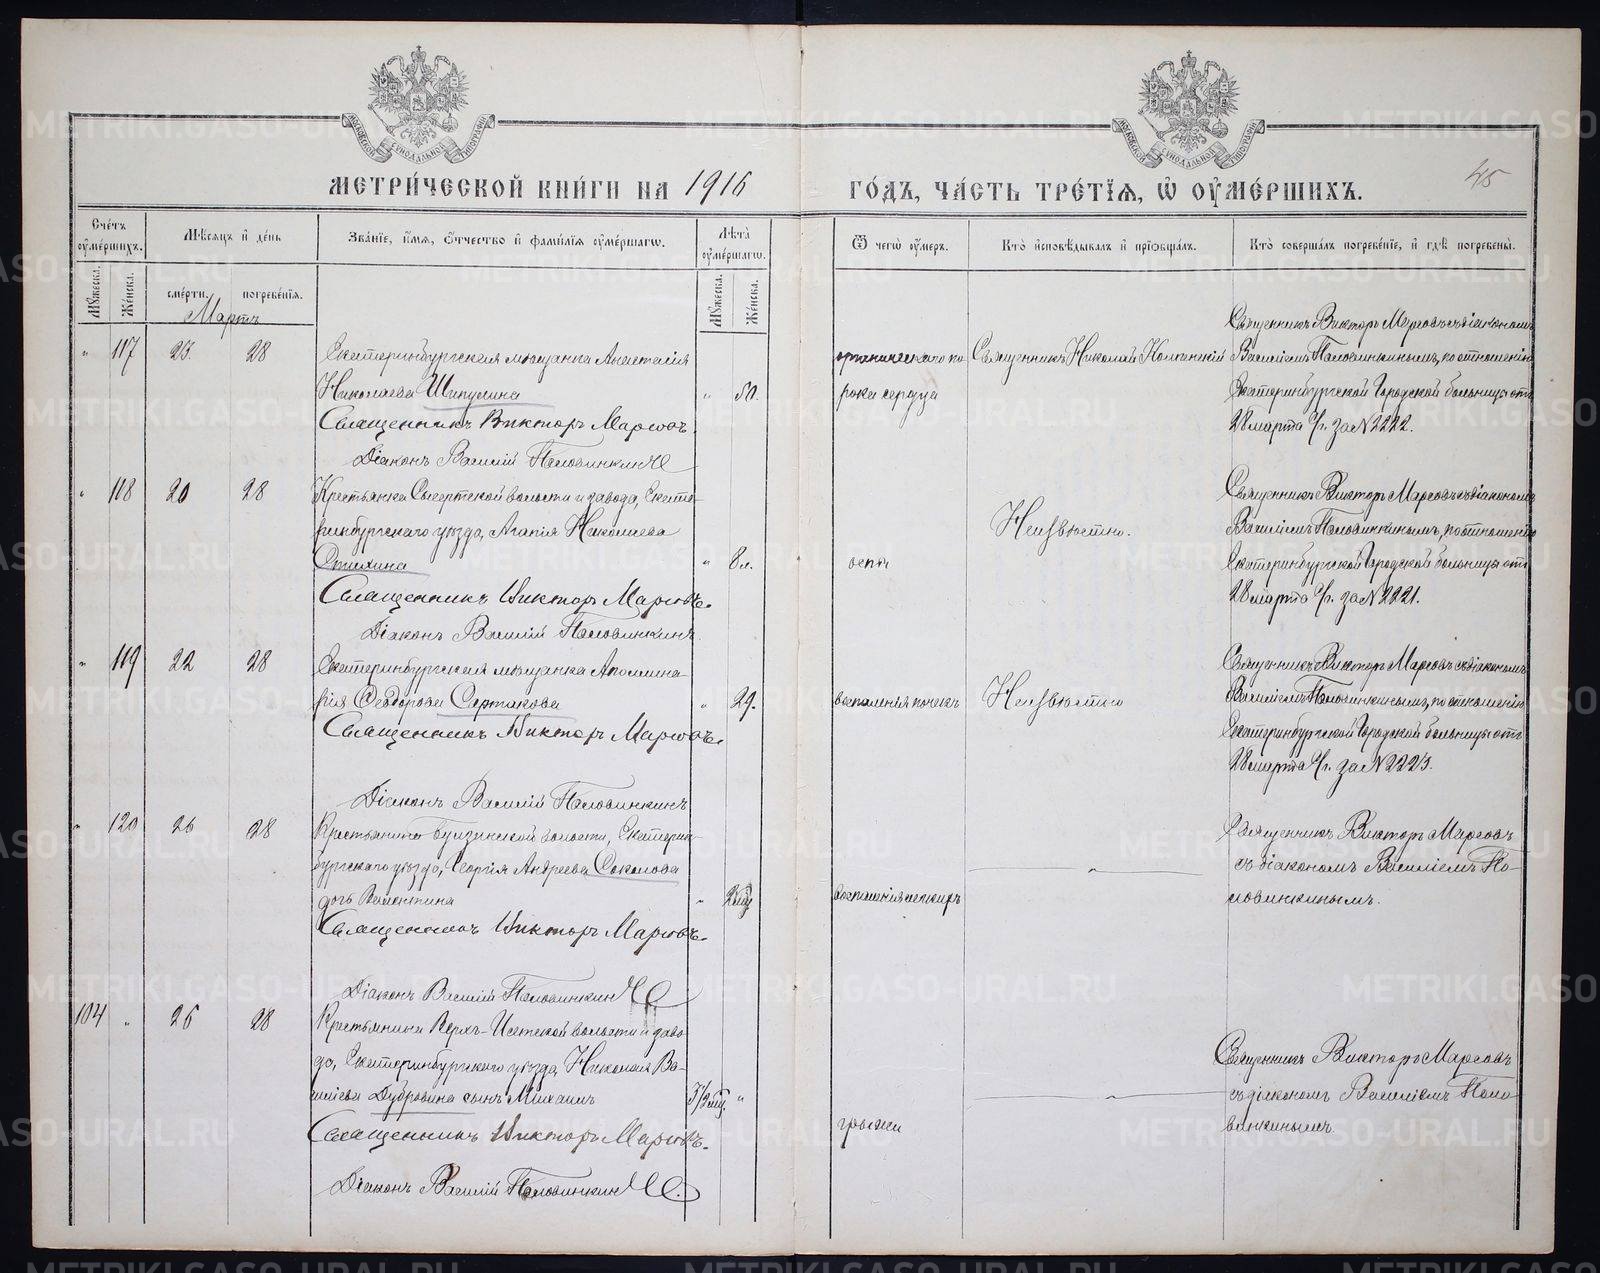 МЕТРИ́ЧЕСКОЙ КНИ́ГИ НА 1916 ГО́ДЪ, ЧА́СТЬ ТРЕ́ТЇѦ, Ѽ ОУ҆МЕ́РШИХЪ.
45
МОСКОВСКОЙ СѴНОДАЛЬНОЙ ТИПОГРАФІИ
МОСКОВСКОЙ СѴНОДАЛЬНОЙ ТИПОГРАФІИ
Сче́тъ оу҆ме́ршихъ.
Мꙋ́жеска.
Же́нска.
Мѣ́сѧцъ и҆ де́нь
сме́рти.
погребе́нїѧ.
Зва́нїе, и҆́мѧ, ѻ҆́тчество и҆ фами́лїѧ оу҆ме́ршагѡ.
Лѣ́та оу҆ме́ршагѡ.
Мꙋ́жеска.
Же́нска.
Ѿ чегѡ̀ оу҆́меръ.
Кто̀ и҆сповѣ́дывалъ и҆ прїѡбща́лъ.
Кто̀ соверша́лъ погребе́нїе, и҆ гдѣ̀ погребены̀.
Мартъ
" 117 23. 28
Екатеринбургская мѣщанка Анастасія
Николаева Шипулина
Священникъ Викторъ Марсовъ.
Діаконъ Василій Половинкинъ
" 50.
органическаго по-
рока сердца
Священникъ Николай
Священникъ Викторъ Марсовъ съ діакономъ
Василіемъ Половинкинымъ, по отношенію
Екатеринбургской Городской больницы отъ
28 марта с/г. за № 2222.
" 118 20 28
Крестьянка Сысертской волости и завода, Екате-
ринбургскаго уѣзда, Агапія Николаева
Священникъ Викторъ Марсовъ.
Діаконъ Василій Половинкинъ.
" 8 л.
оспы
Неизвѣстно.
Священникъ Викторъ Марсовъ съ діакономъ
Василіемъ Половинкинымъ, по отношенію
Екатеринбургской Городской больницы отъ
28 марта с/г. за № 2221.
" 119 22 28
Екатеринбургская мѣщанка Аполлина-
рія Ѳеодорова Сертакова
Священникъ Викторъ Марсовъ.
Діаконъ Василій Половинкинъ
" 29.
воспаленія почекъ
Неизвѣстно
Священникъ Викторъ Марсовъ съ діакономъ
Василіемъ Половинкинымъ, по отношенію
Екатеринбургской Городской больницы отъ
28 марта с/г. за № 2223.
" 120 26 28
Крестьянина волости, Екатерин-
бургскаго уѣзда, Георгія Андреева Соколова
дочь Валентина
Священникъ Викторъ Марсовъ.
Діаконъ Василій Половинкинъ
" 2 мѣц
воспаленія
"
Священникъ Викторъ Марсовъ
съ діакономъ Василіемъ По-
ловинкинымъ.
104 " 26 28
Крестьянина Верхъ-Исетской волости и заво-
да, Екатеринбургскаго уѣзда, Николая Ва-
сильева Дубровина сынъ Михаилъ
Священникъ Викторъ Марсовъ.
Діаконъ Василій Половинкинъ
3 1/2 мѣц. "
грыжи
"
Священникъ Викторъ Марсовъ
съ діакономъ Василіемъ Поло-
винкинымъ.
METRIKI.GASO-URAL.RU